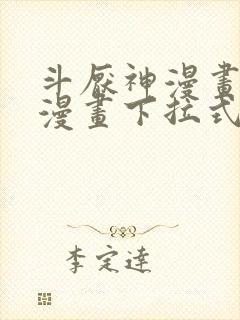 斗厭神漫畫
漫畫下拉式
李定達